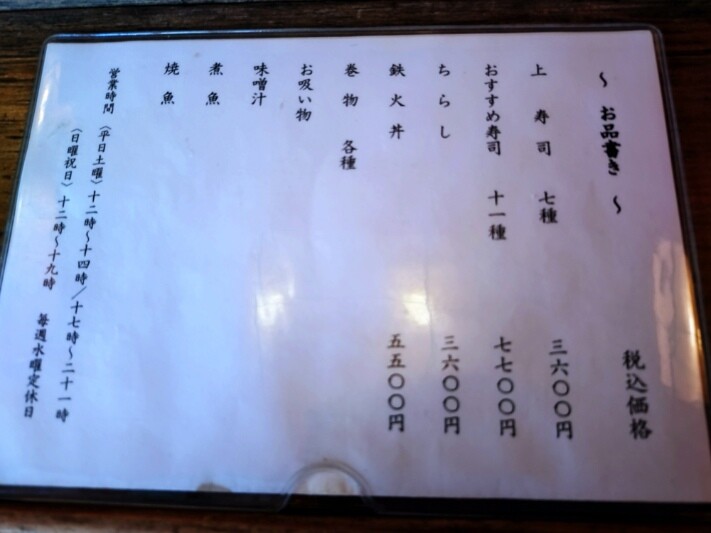 ～ お品書き ～ 税込価格
上 寿司 七種 三六〇〇円
おすすめ寿司 十一種 七七〇〇円
ちらし 三六〇〇円
鉄火丼 五五〇〇円
巻物 各種
お吸い物
味噌汁
煮魚
焼魚
営業時間 (平日土曜) 十二時～十四時/十七時～二十一時
(日曜祝日) 十二時～十九時 毎週水曜定休日